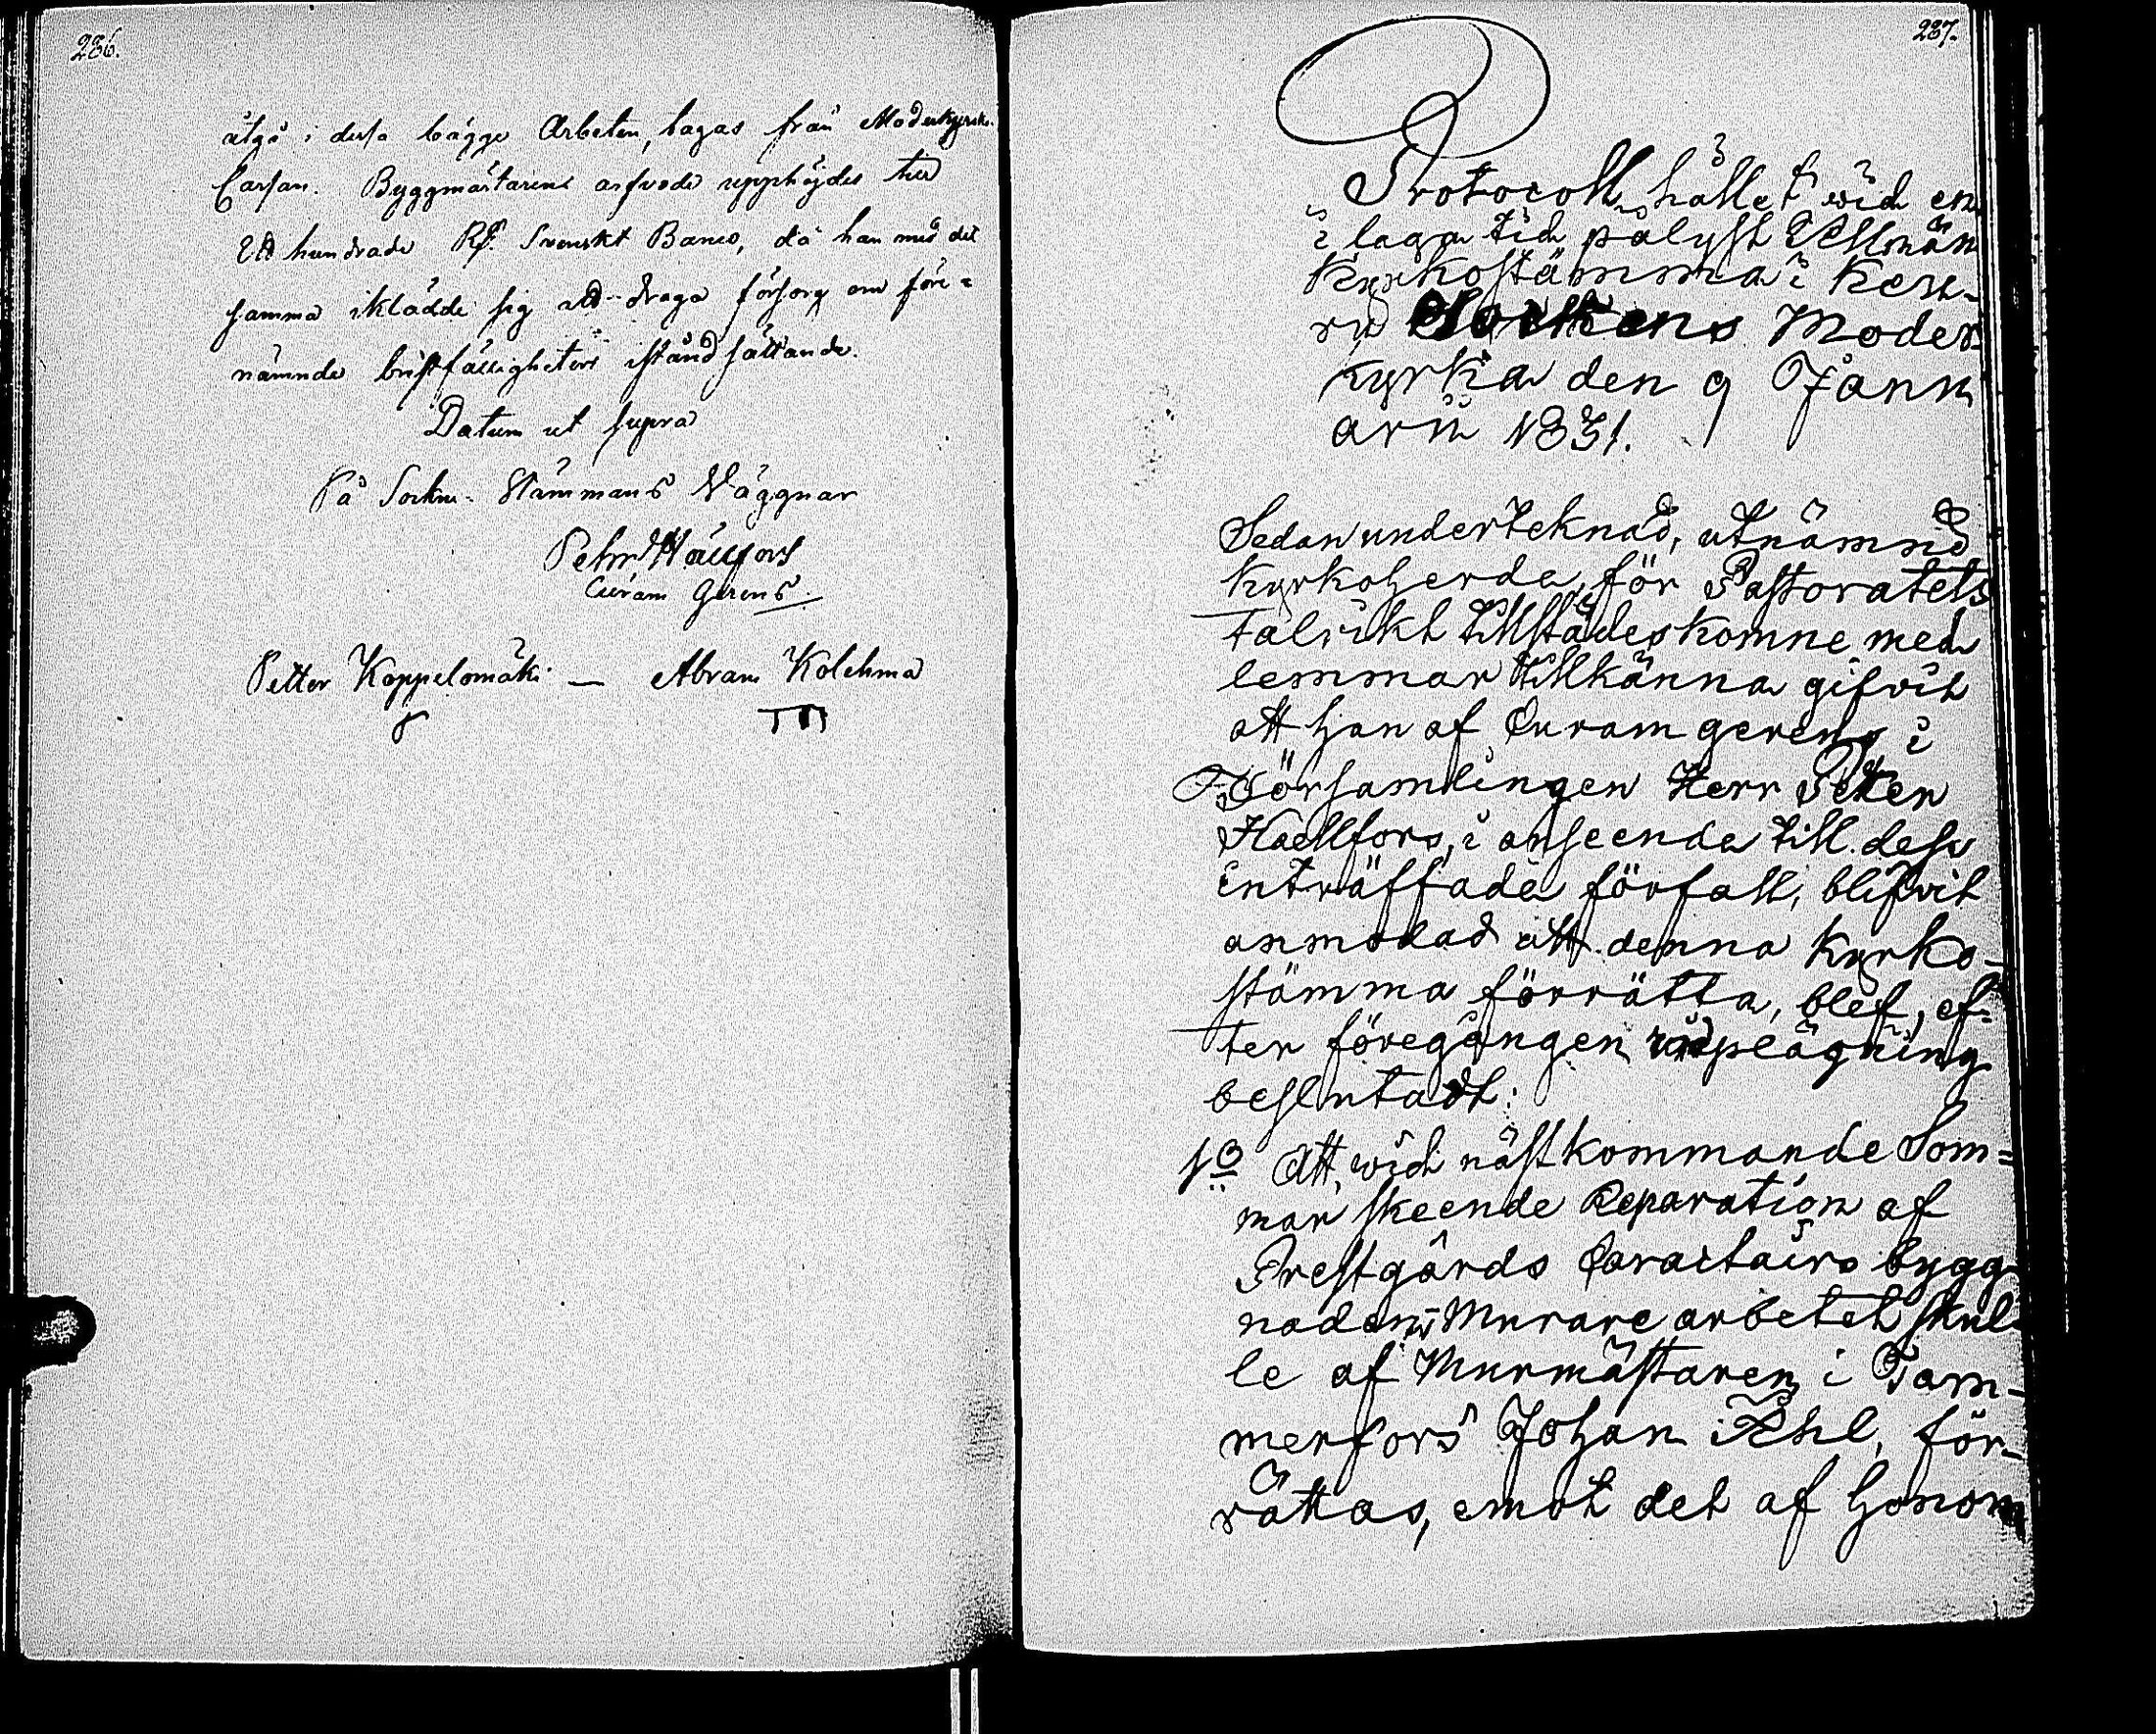 286.
åtgå i dessa bägge Arbeten, tagas från Moderkyrk-
Cassan. Byggmästarens arfvode upphöjdes till
Ett hundrade Rf. Svenskt Banco, då han med det
samma iklädde sig att draga försorg om före=
nämnde bristfälligheters iståndsättande.
Datum ut supra
På Sockne-Stämmans Wäggnar
Petr Hällfors
Curam Gerens.
Petter Koppelomäki — Abram Kolehma
237.
Protocoll, hållet wid en
i laga tid pålyst Allmän
Kyrkostämma i Keu-
ru Sockens Moder
kyrka den 9 Janu
arii 1831.
Sedan undertecknad, utnämnd
Kyrkoherde, för Pastoratets
talrikt tillstädeskomne med
lemmar tillkänna gifvit
att han af Curam gerens i
Församlingen Herr Petter
Haellfors, i anseende till dess
inträffade förfall, blifvit
anmodad att denna Kyrko-
stämma förrätta, blef, ef=
ter föregången rådplägning
beslutadt:
1o Att, wid nästkommande Som=
mar skeende Reparation af
Prestgårds Caractairs bygg
naden, Murare arbetet skul
le af Murmästaren i Tam-
merfors Johan för-
rättas, emot det af honom